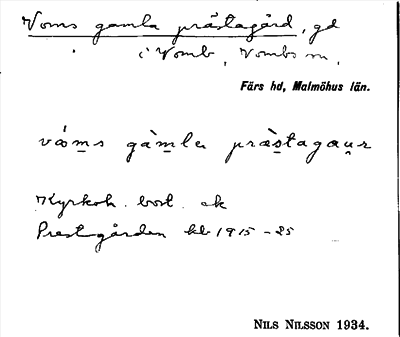 Voms gamla prästagård, gd
i Vomb, Vombs sn,
Färs hd, Malmöhus län.
våms gàmla præstagaur
Kyrkoh. bost. ak
Prestgården kb 1915-25
NILS NILSSON 1934.